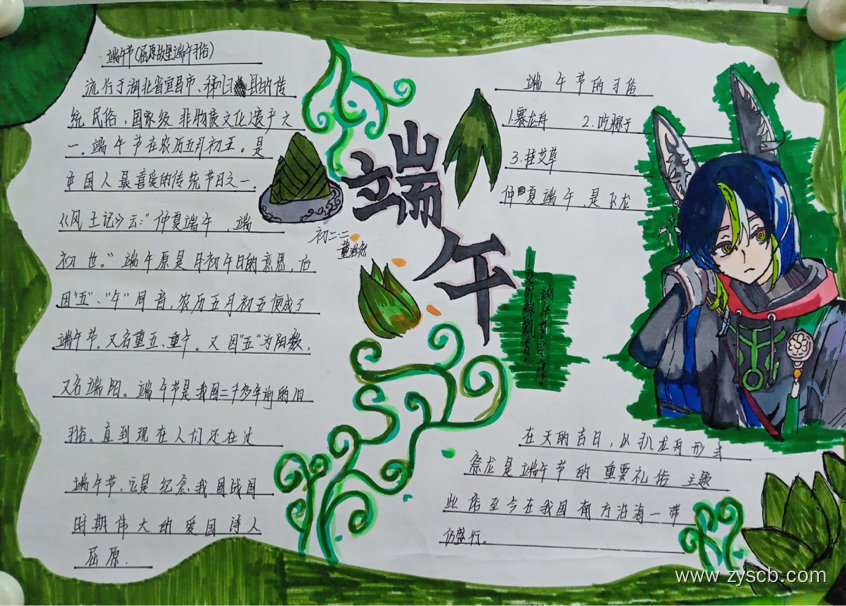 端午节(屈原故里端午习俗)
流行于湖北省宜昌市、秭归县的传
统民俗，国家级非物质文化遗产之
一。端午节在农历五月初五。是
中国人最喜爱的传统节日之一.
《风土记》云:"仲夏端午 端
初也。"端午原是月初午日的意思,
因"五"、"午"同音,农历五月初五便成了
端午节.又名重五、重午。又因"五"为阳数,
又名端阳。端午节是我国二千多年前的旧
习俗。直到现在人们还在过
端午节、它是纪念我国战国
时期伟大的爱国诗人
屈原.
端午
初二.二
端午节的习俗
1.赛龙舟 2.吃粽子
3.挂艾草
仲夏端午.是飞龙
在天的吉日,以扒龙舟形式
祭龙是端午节的重要礼俗 主题
此俗至今在我国南方沿海一带
仍盛行。
www.zyscb.com